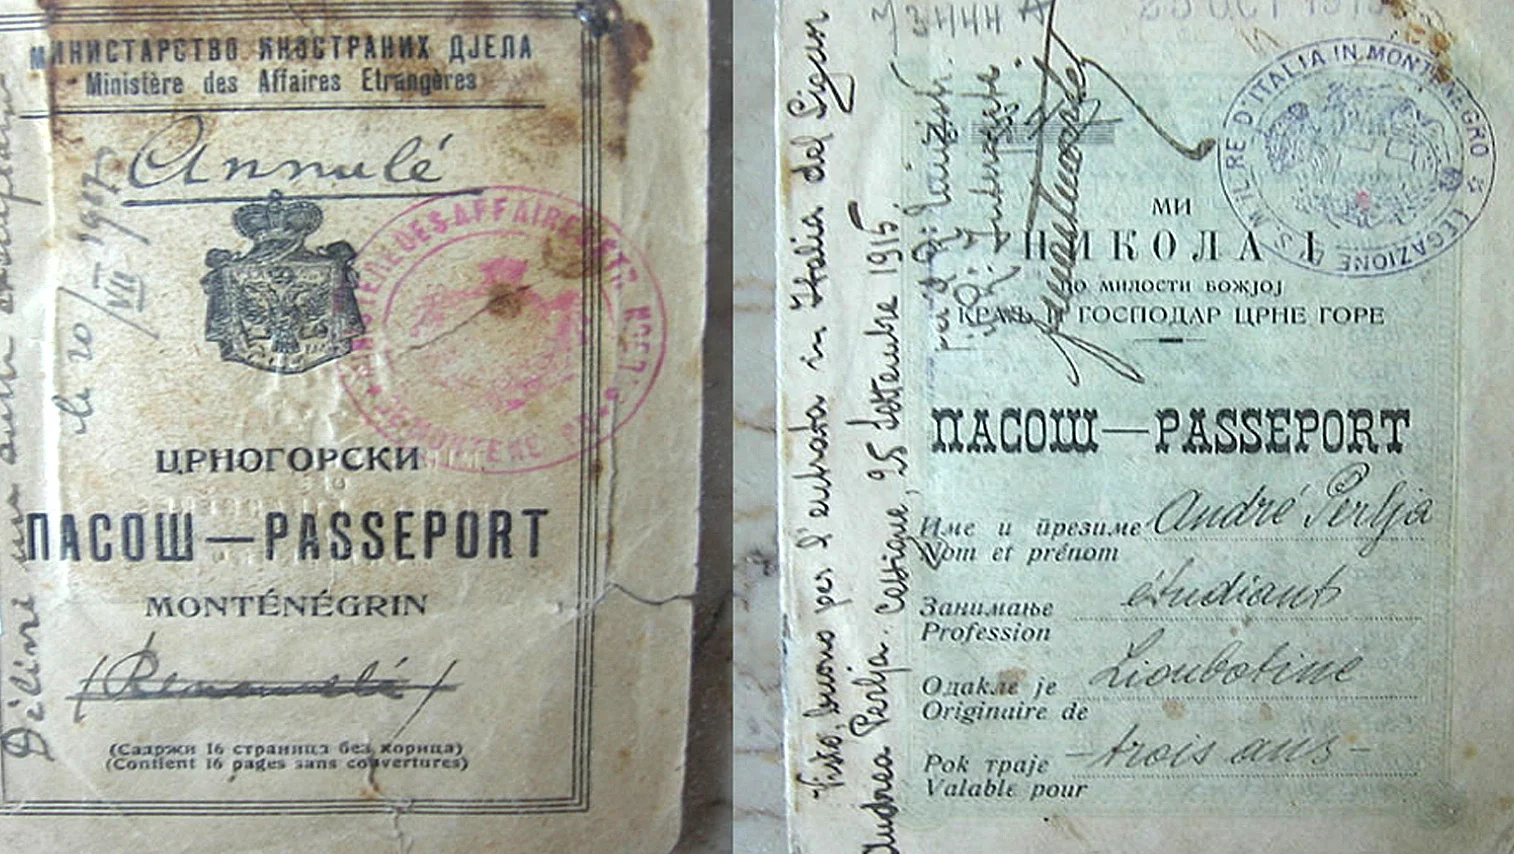 МИНИСТАРСТВО ИНОСТРАНИХ ДЈЕЛА
Ministère des Affaires Etrangères
Annulé
le 20/VII 1917
ЦРНОГОРСКИ
ПАСОШ—PASSEPORT
MONTÉNÉGRIN
(Renouvelé)
(Садржи 16 страница без корица)
(Contient 16 pages sans couvertures)
Délivré un autre
MINISTÈRE DES AFFAIRES ETR
DE MONTENEGRO
Visto, buono per l'entrata in Italia del Signor
Andrea Perlja. Cettigne, 25 Settembre 1915.
3444
25 OCT 1915
LEGAZIONE DI S.M. IL RE D'ITALIA IN MONTENEGRO
МИ
НИКОЛА I
ПО МИЛОСТИ БОЖЈОЈ
КРАЉ И ГОСПОДАР ЦРНЕ ГОРЕ
ПАСОШ—PASSEPORT
Име и презиме André Perlja
Nom et prénom
Занимање étudiant
Profession
Одакле је Lioubotine
Originaire de
Рок траје - trois ans -
Valable pour